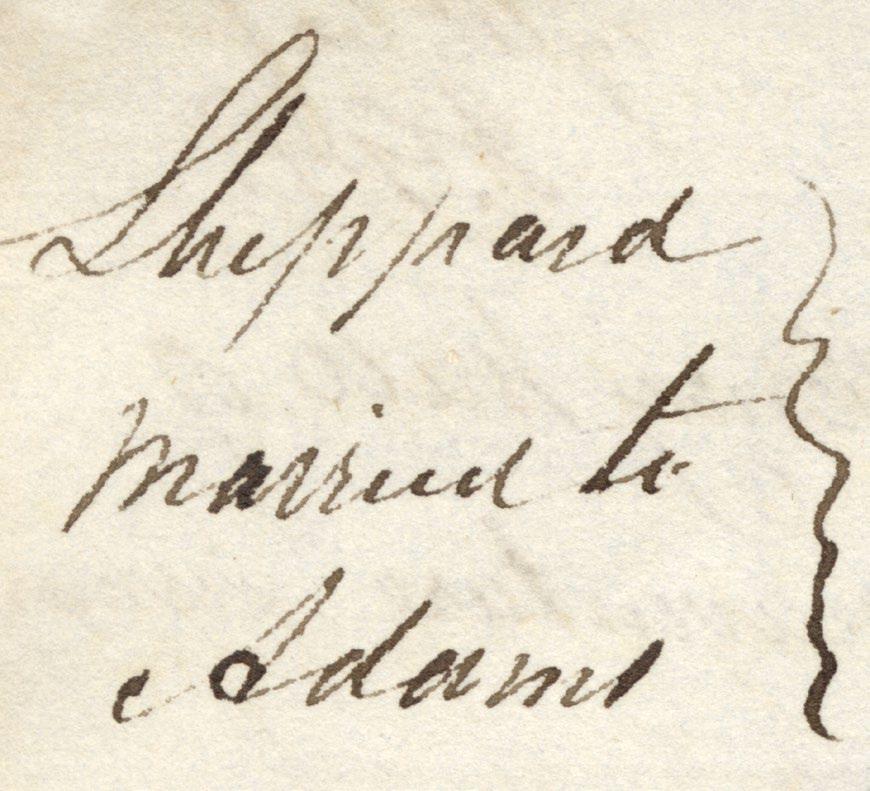 Sheppard
married to
Adams